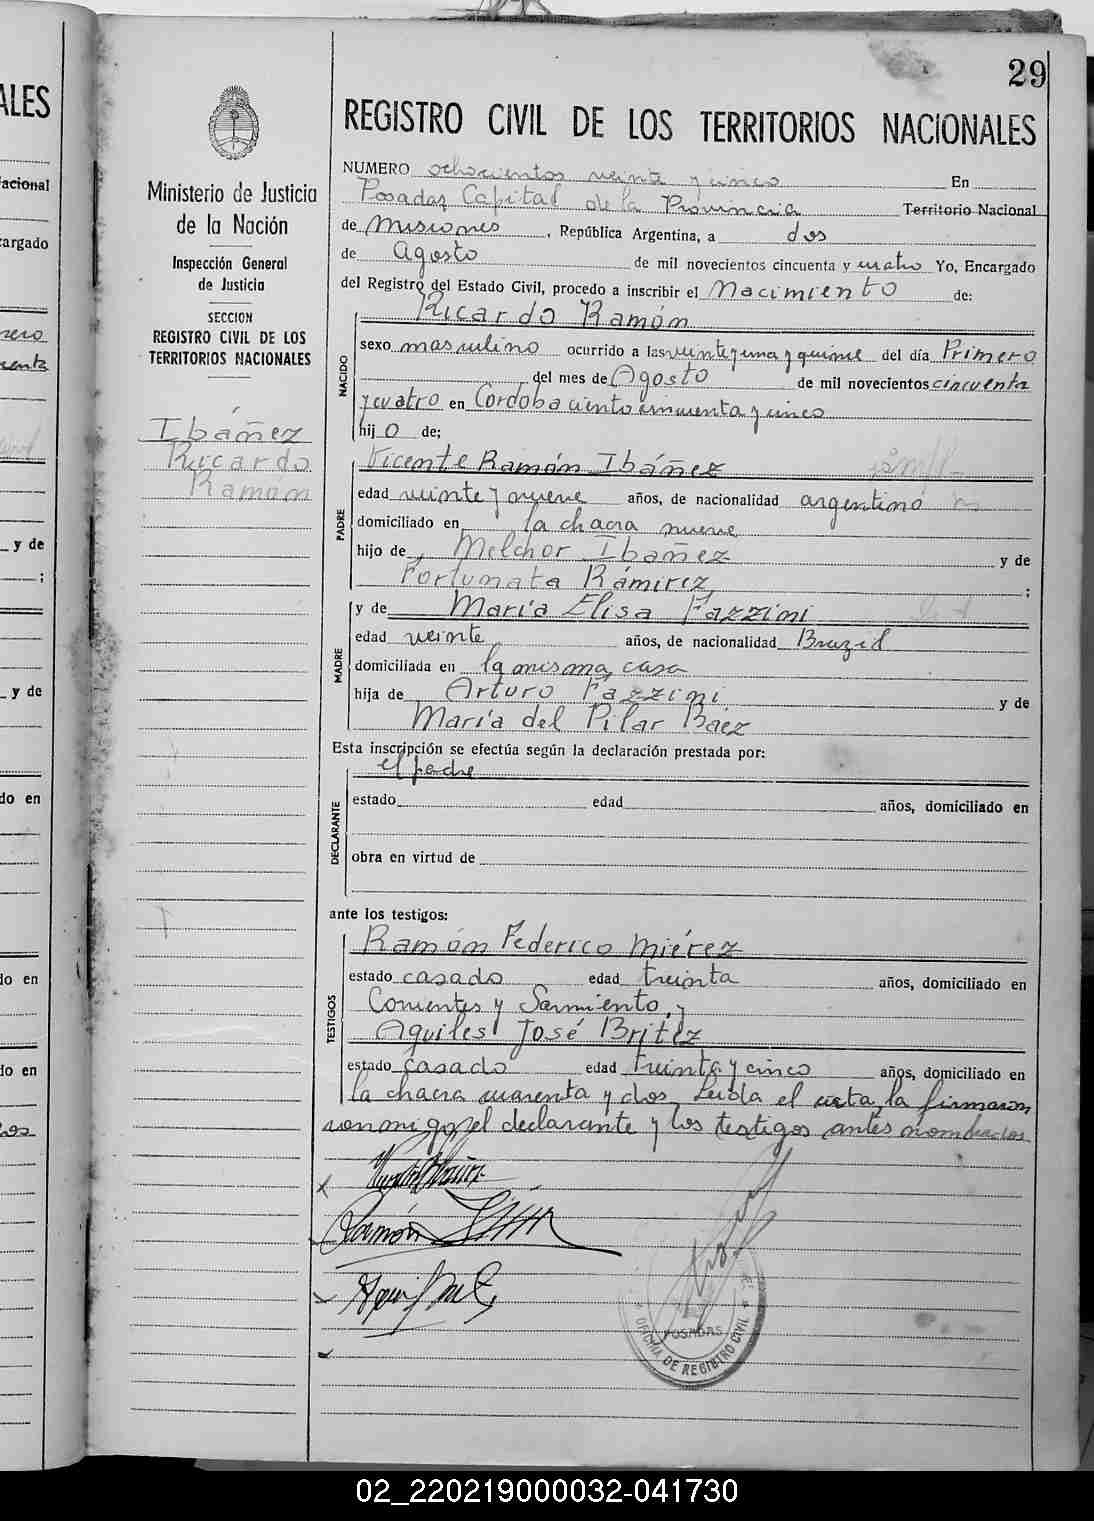 29
REGISTRO CIVIL DE LOS TERRITORIOS NACIONALES
Ministerio de Justicia
de la Nación
Inspección General
de Justicia
SECCION
REGISTRO CIVIL DE LOS
TERRITORIOS NACIONALES
Ibáñez
Ricardo
Ramón
NUMERO ochocientos veinte y cinco En
Posadas Capital de la Provincia Territorio Nacional
de Misiones, República Argentina, a dos
de Agosto de mil novecientos cincuenta y cuatro Yo, Encargado
del Registro del Estado Civil, procedo a inscribir el Nacimiento de:
Ricardo Ramón
NACIDO
sexo masculino ocurrido a las veinte y una y quince del día Primero
del mes de Agosto de mil novecientos cincuenta
y cuatro en Córdoba ciento cincuenta y cinco
hijo de;
Vicente Ramón Ibáñez
PADRE
edad veinte y nueve años, de nacionalidad argentino
domiciliado en la chacra nueve
hijo de Melchor Ibañez y de
Fortunata Rámirez ;
y de María Elisa Fazzini
MADRE
edad veinte años, de nacionalidad Brazil
domiciliada en la misma casa
hija de Arturo Fazzini y de
María del Pilar Báez
Esta inscripción se efectúa según la declaración prestada por:
el padre
DECLARANTE
estado edad años, domiciliado en
obra en virtud de
ante los testigos:
Ramón Federico Miérez
TESTIGOS
estado casado edad treinta años, domiciliado en
Corrientes y Sarmiento, y
Aquiles José Britez
estado casado edad treinta y cinco años, domiciliado en
la chacra cuarenta y dos. Leida el acta, la firmaron
conmigo, el declarante y los testigos antes nombrados
Ramón
POSADAS
OFICINA DE REGISTRO CIVIL
ALES
acional
cargado
y de
;
y de
do en
do en
do en
02_220219000032-041730